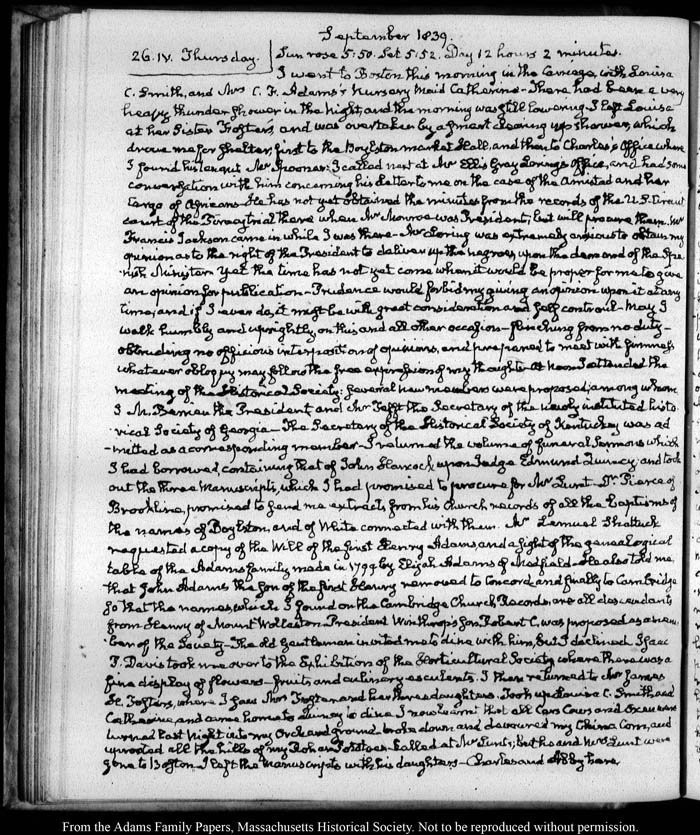 September 1839.
26. IV. Thursday. Sun rose 5:50. Set 5:52. Day 12 hours 2 minutes.
I went to Boston this morning in the Carriage, with Louisa
C. Smith, and Mrs C. F. Adams's Nursery Maid Catherine - There had been a very
heavy thunder shower in the Night, and the morning was still lowering. I left Louisa
at her Sister Foster's, and was overtaken by a smart clearing up shower, which
drove me for shelter, first to the Boylston market Hall, and then to Charles's Office where
I found his Mr Spooner. I called next at Mr Ellis Gray Loring's Office, and had some
conversation with him concerning his Letter to me on the case of the Amistad and her
Cargo of Africans. He has not yet obtained the minutes from the records of the U.S. Circuit
court of the Piracy trial there when Mr Monroe was President, but will procure them. Mr
Francis Jackson came in while I was there - Mr Loring was extremely anxious to obtain my
opinion as to the right of the President to deliver up the negroes, upon the demand of the Spa-
nish Minister. Yet the time has not yet come when it would be proper for me to give
an opinion for publication - Prudence would forbid my giving an opinion upon it at any
time, and if I ever do, it must be with great consideration and self controul - May I
walk humbly and uprightly, on this and all other occasions - flinching from no duty -
obtruding no officious interposition of opinions, and prepared to meet with firmness
whatever obloquy may follow the free expression of my thoughts. At Noon I attended the
meeting of the Historical Society; several new members were proposed; among whom
J. M. Berrien the President and Mr Tefft the Secretary of the newly instituted histo-
rical Society of Georgia - The Secretary of the Historical Society of Kentucky was ad
-mitted as a corresponding member - I returned the volume of funeral Sermons which
I had borrowed, containing that of John Hancock, upon Judge Edmund Quincy; and took
out the three Manuscripts, which I had promised to procure for Mr Lunt. Dr Pierce of
Brookline, promised to send me extracts from his Church records of all the Baptisms of
the names of Boylston, and of White connected with them. Mr Lemuel Shattuck
requested a copy of the Will of the first Henry Adams, and a sight of the genealogical
table of the Adams family, made in 1799 by Elijah Adams of Medfield. He also told me,
that John Adams, the son of the first Henry removed to Concord, and finally to Cambridge
so that the names, which I found on the Cambridge Church Records, are all descendants
from Henry of Mount Wollaston. President Winthrop's son Robert C. was proposed as a mem-
ber of the Society - The old Gentleman invited me to dine with him, but I declined. Isaac
P. Davis took me over to the Exhibition of the Horticultural Society, where there was a
fine display of flowers - fruits and culinary esculents. I then returned to Mr James
H. Foster's, where I saw Mrs Foster and her three daughters. Took up Louisa C. Smith, and
Catherine, and came home to Quincy to dine. I now learnt that Cows and Oxen were
turned last Night into my Orchard ground, broke down and devoured my China Corn, and
uprooted all the hills of my Rohan Potatoes - Called at Mr Lunt's; but he and Mrs Lunt were
gone to Boston. I left the Manuscripts with his daughters - Charles and Abby here
From the Adams Family Papers, Massachusetts Historical Society. Not to be reproduced without permission.